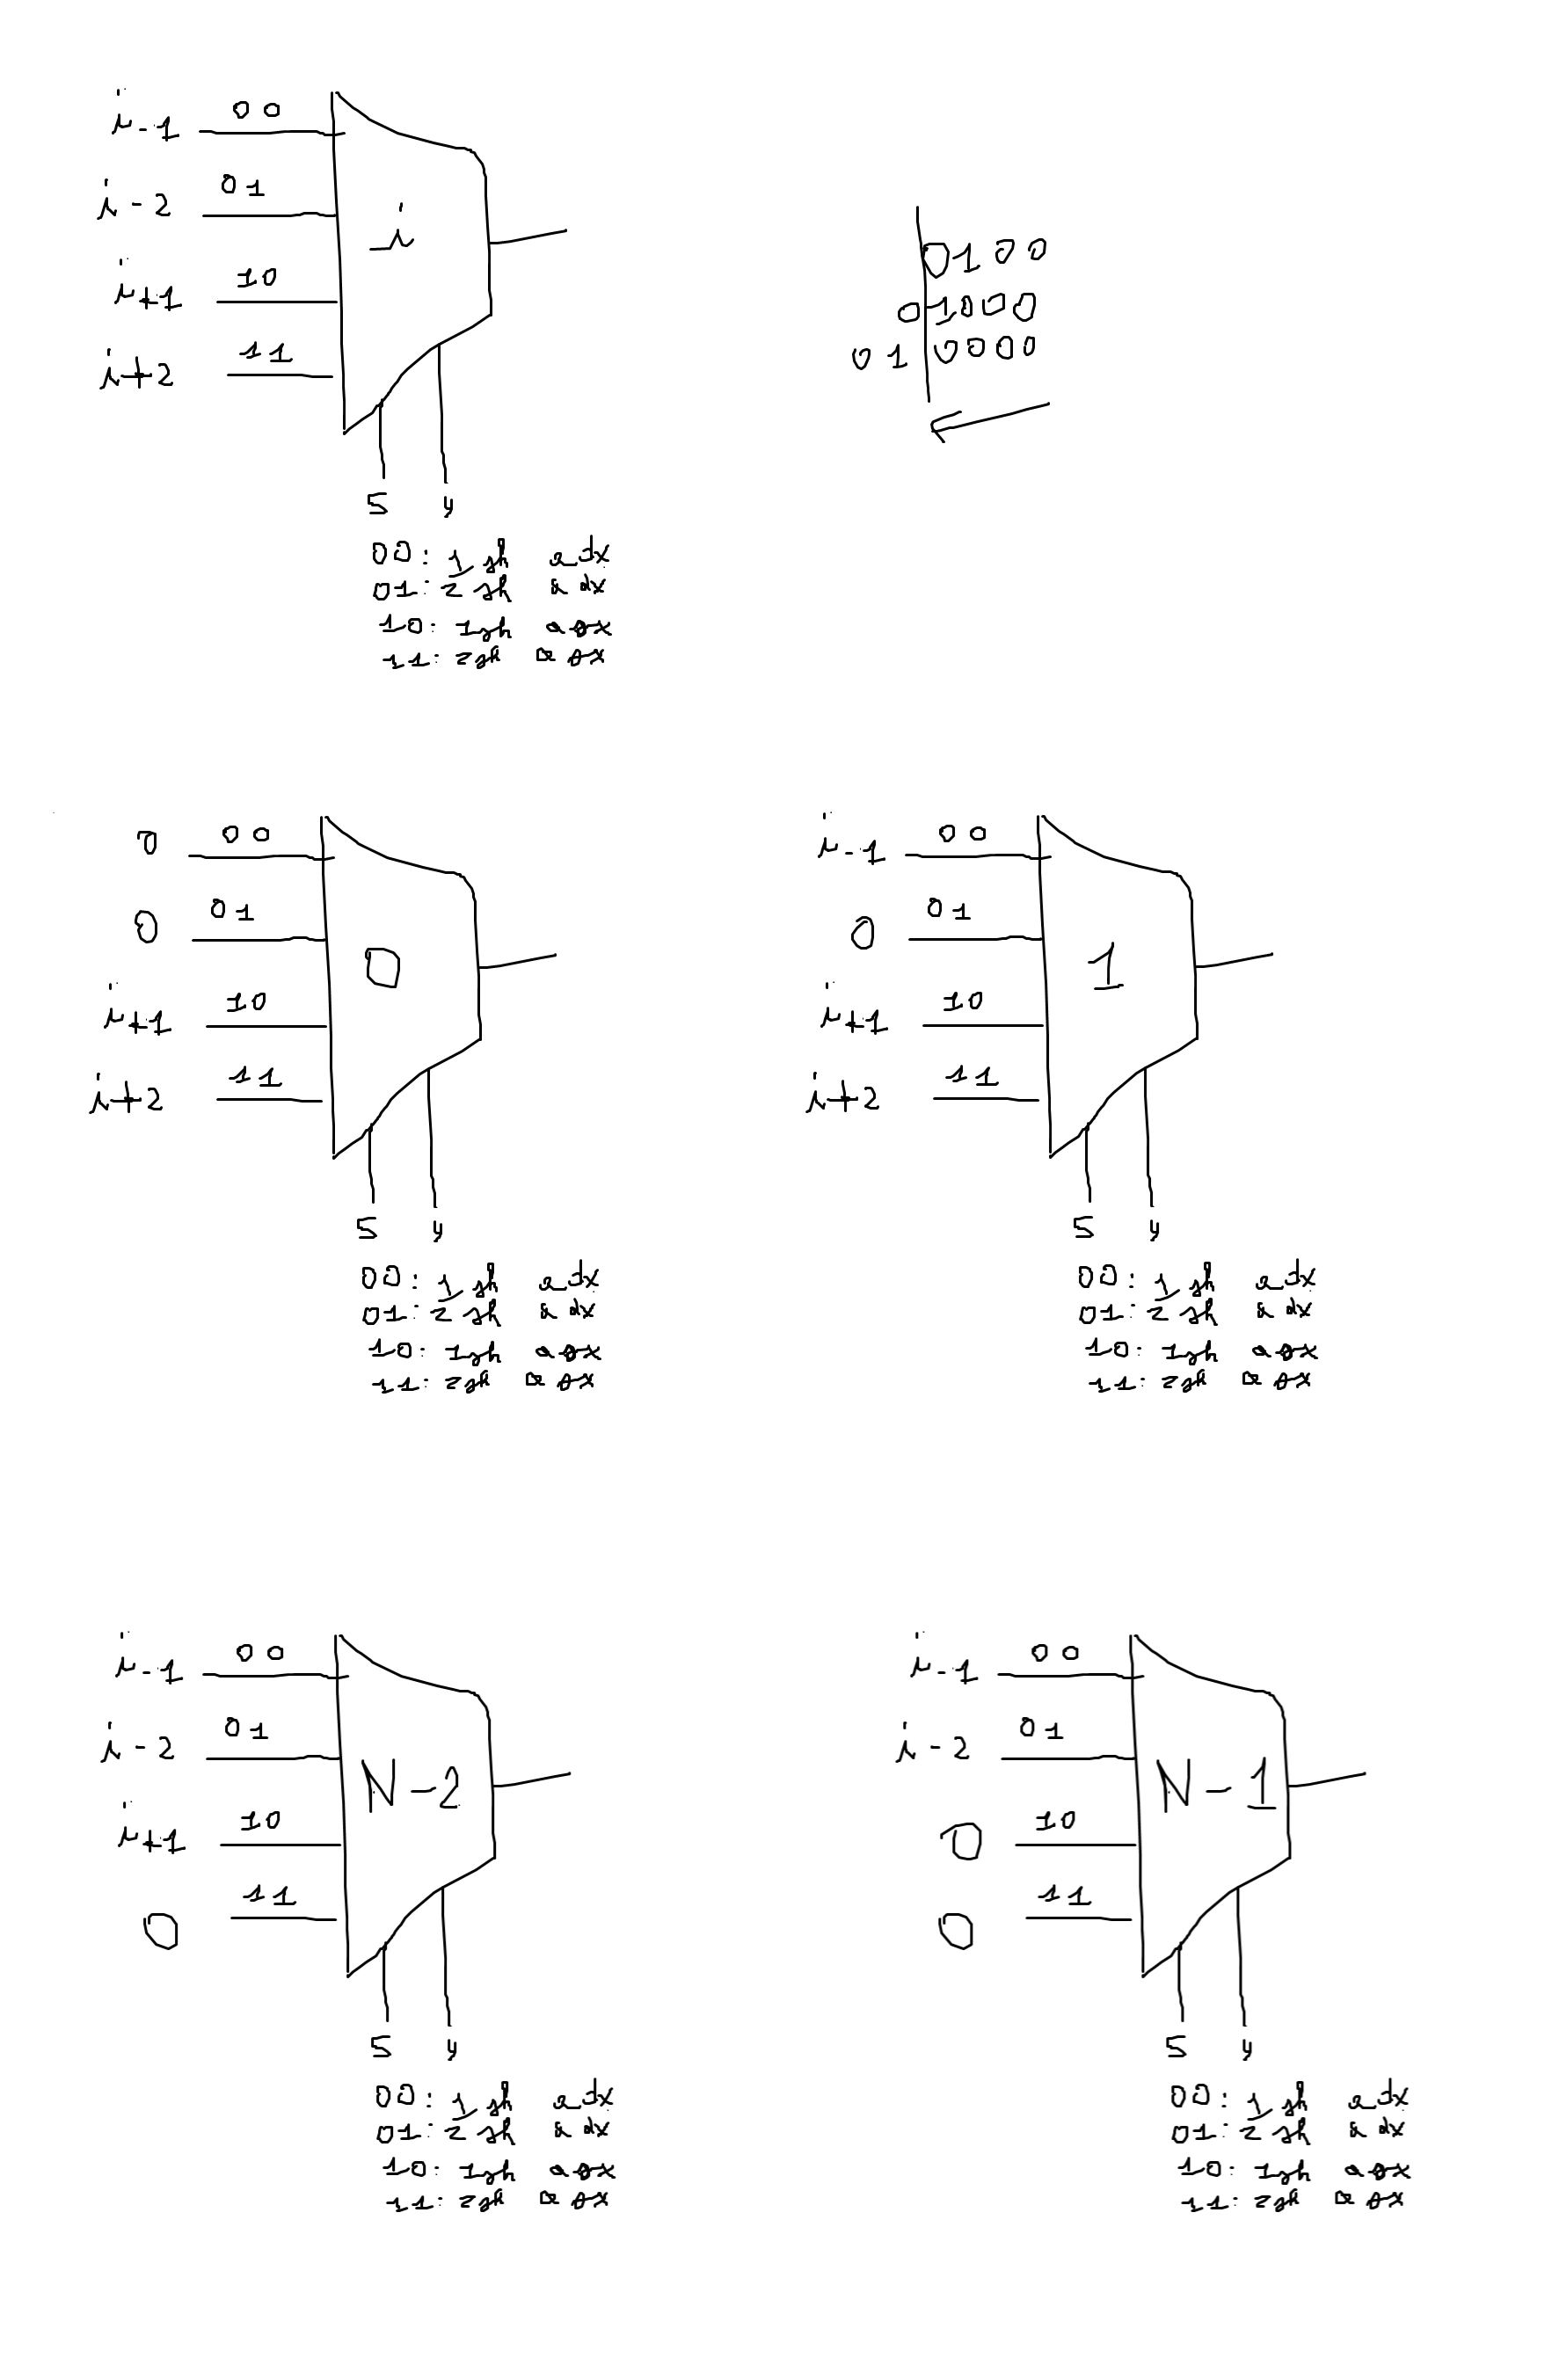 i-1 00
i-2 01
i+1 10
i+2 11
i
S y
00: 1 sh a dx
01: 2 sh a dx
10: 1sh a sx
11: 2sh a sx
0100
01000
010000
0 00
0 01
i+1 10
i+2 11
0
S y
00: 1 sh a dx
01: 2 sh a dx
10: 1sh a sx
11: 2sh a sx
i-1 00
0 01
i+1 10
i+2 11
1
S y
00: 1 sh a dx
01: 2 sh a dx
10: 1sh a sx
11: 2sh a sx
i-1 00
i-2 01
i+1 10
0 11
N-2
S y
00: 1 sh a dx
01: 2 sh a dx
10: 1sh a sx
11: 2sh a sx
i-1 00
i-2 01
0 10
0 11
N-1
S y
00: 1 sh a dx
01: 2 sh a dx
10: 1sh a sx
11: 2sh a sx